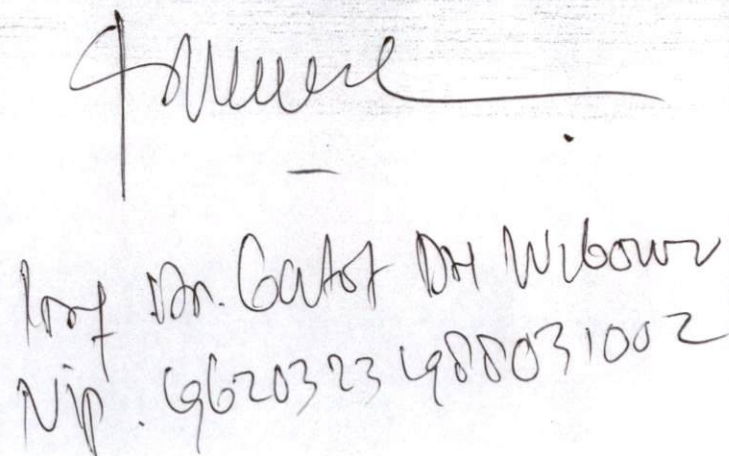 Prof Dr. Gatot DH Wibowo
Nip. 196203231988031002